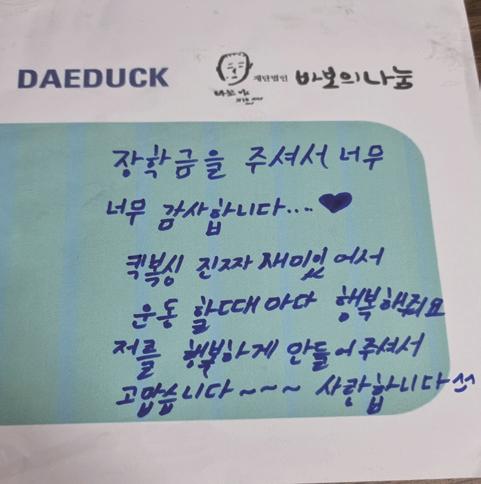 DAEDUCK 재단법인 바보의나눔
장학금을 주셔서 너무
너무 감사합니다.... ♥
킥복싱 진짜 재미있어서
운동 할때마다 행복해줘요
저를 행복하게 만들어주셔서
고맙습니다~~~ 사랑합니다